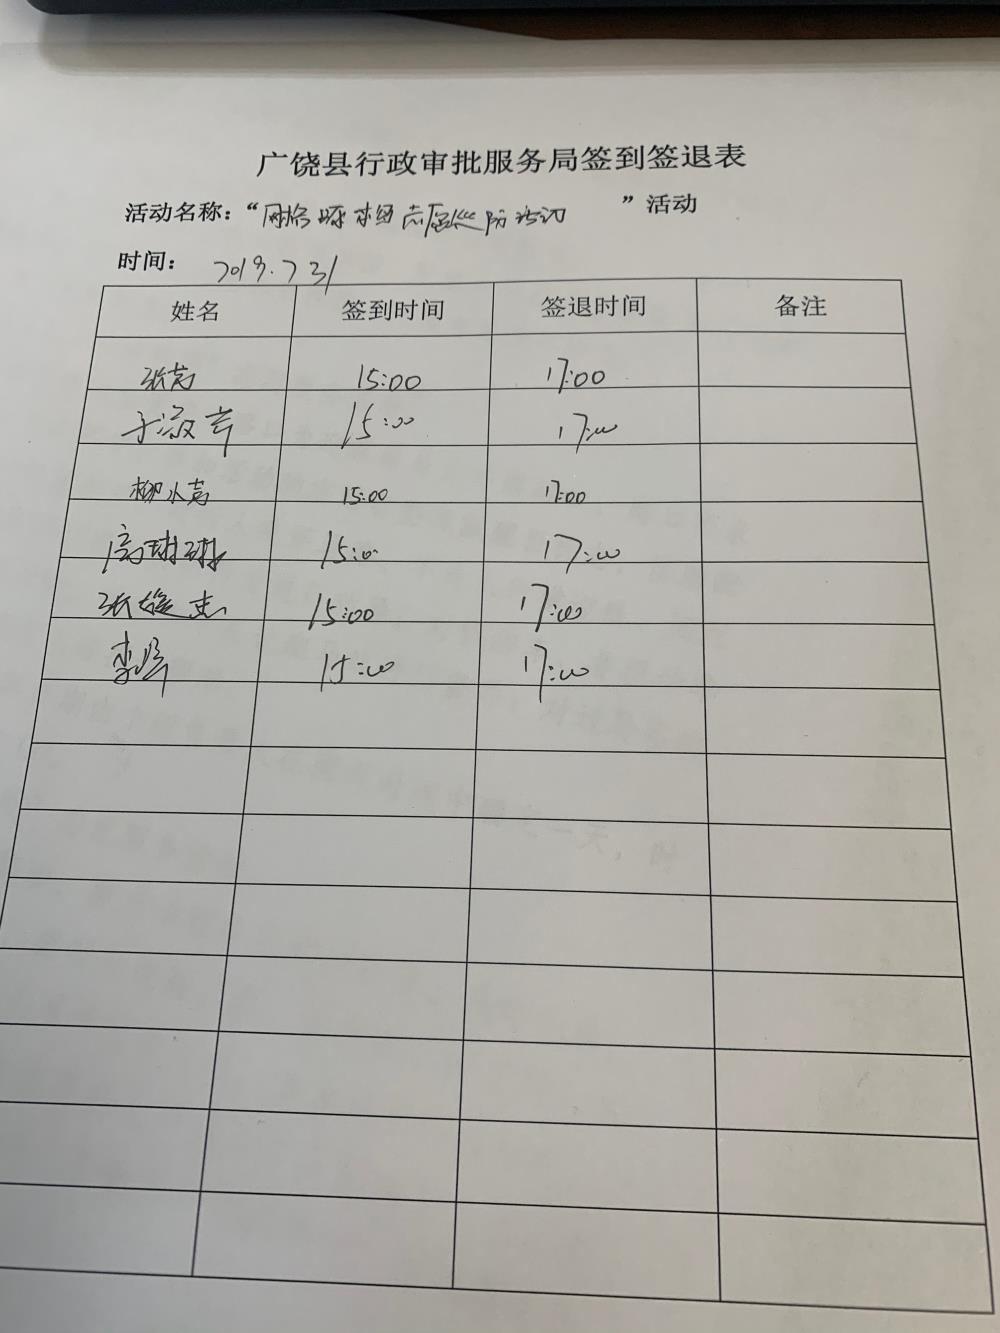 广饶县行政审批服务局签到签退表
活动名称：“网格 志愿巡防活动 ”活动
时间： 2019.7 31
姓名 签到时间 签退时间 备注
15:00 17:00
于淑芹 15:00 17:00
柳小芳 15:00 17:00
高琳琳 15:00 17:00
张雄杰 15:00 17:00
李峰 15:00 17:00